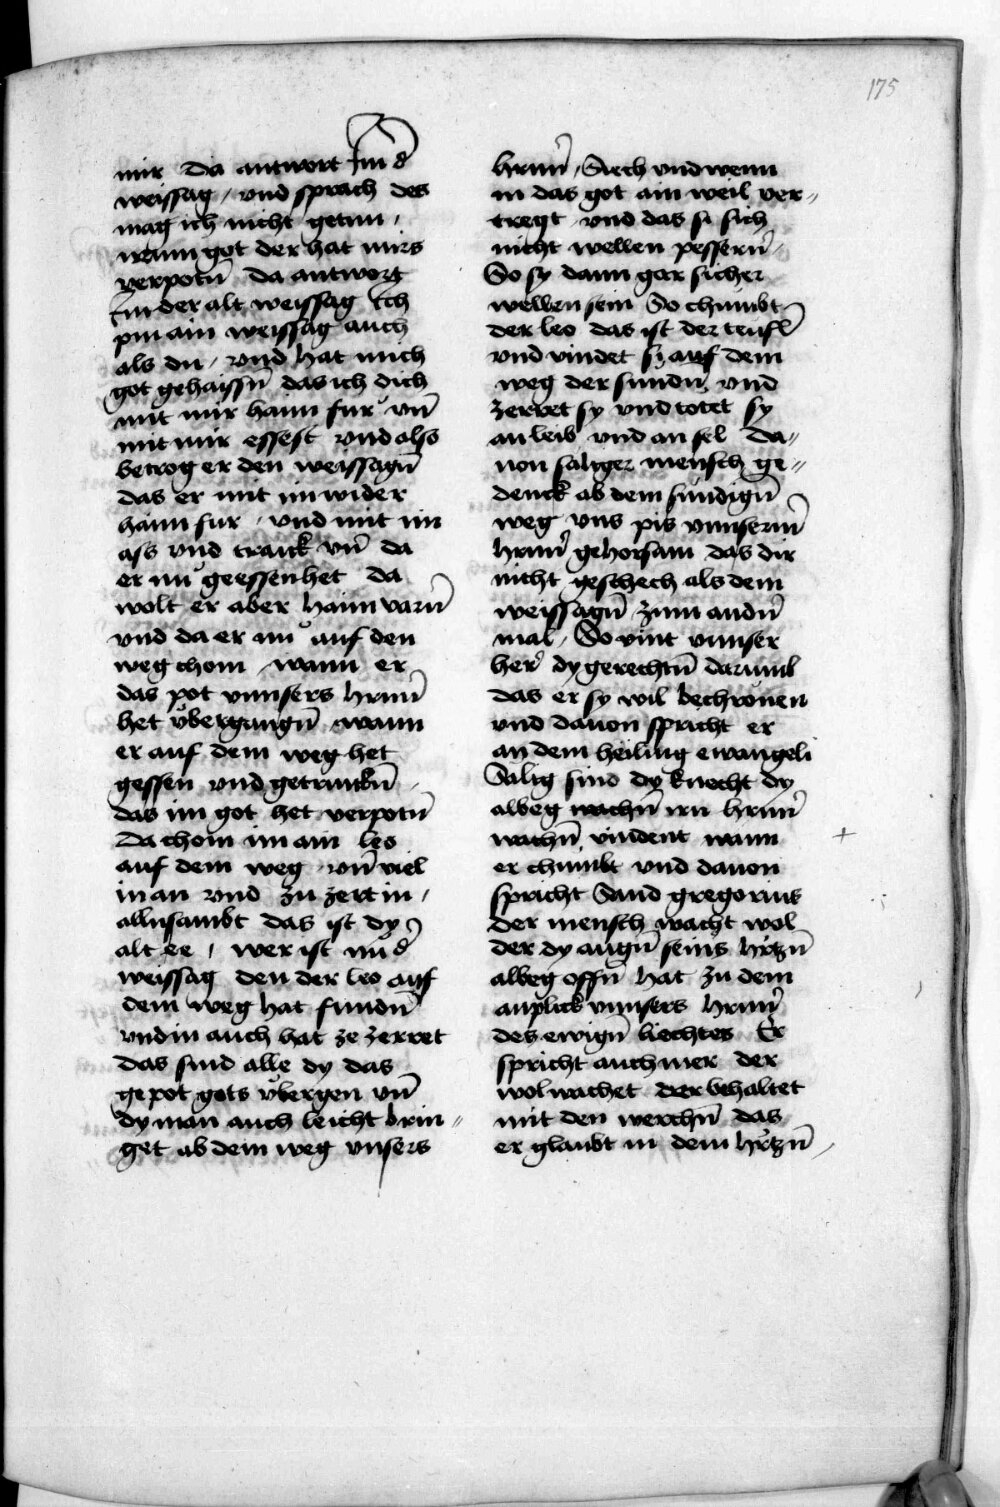 175
mir da antwort im d̄
weissag / vnd sprach des
mag ich nicht getun /
wann got der hat mirs
verpotn̄ da antwort
im der alt weissag ich
pin ain weissag auch
als du / vnd hat mich
got gehaissn̄ das ich dich
mit mir haim fur vn̄
mit mir essest vnd also
betrog er den weissagn̄
das er mit im wider
haim fur / vnd mit im
ass vnd tranck vn̄ da
er nu geessen het da
wolt er aber haim varn̄
vnd da er nu auf den
weg chom / wann er
das pot vnnsers hrnn̄
het v̈bergangn̄ / wann
er auf dem weg het
gessen vnd getrunckn̄ /
das im got het verpotn̄
da chom im ain leo
auf dem weg / vn̄ viel
in an vnd zu zert in /
allnsambt das ist dy
alt ee / wer ist nu d̄
weissag den der leo auf
dem weg hat fundn̄
vnd in auch hat ze zerret
das sind alle dy das
gepot gots v̈bergen vn̄
dy man auch leicht brin=
get ab dem weg vnsers
hrnn̄ / Siech vnd wenn
in das got ain weil ver=
tregt / vnd das si sich
nicht wellen pessern̄ /
So sy dann gar sicher
wellen sein So chumbt
der leo das ist der teufl̄
vnd vindet sy auf dem
weg der sundn̄ vnd
zerret sy vnd totet sy
an leib vnd an sel da=
uon saliger mensch ge=
denck ab dem sundign̄
weg vns pis vnnserm̄
hrnn̄ gehorsam das dir
nicht geschech als dem
weissagn̄ / zum andn̄
mal / So vint vnnser
her̄ dy gerechtn̄ darumb
das er sy wil bechronen
vnd dauon spricht er
an dem heiling ewangeli
Salig sind dy knecht dy
albeg wachn̄ irn hrnn̄
wachn̄ vindent wann
er chumbt vnd dauon
spricht Sand gregorius
der mensch wacht wol
der dy augn̄ seins hr̄tzn̄
albeg offn̄ hat zu dem
anplick vnnsers hrnn̄
des ewign̄ liechtes Er
spricht auch mer der
wol wachet der behaltet
mit den werchn̄ das
er glaubt in dem hr̄tzn̄ /